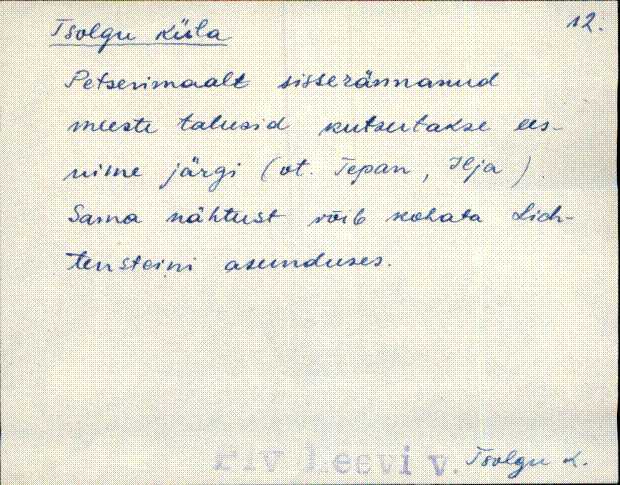 Tsolgu küla
12.
Petserimaalt sisserännanud
meeste talusid kutsutakse ees-
nime järgi (vt. Tepan, Ilja).
Sama nähtust võib kohata Lich-
tensteini asunduses.
Leevi v. Tsolgu k.